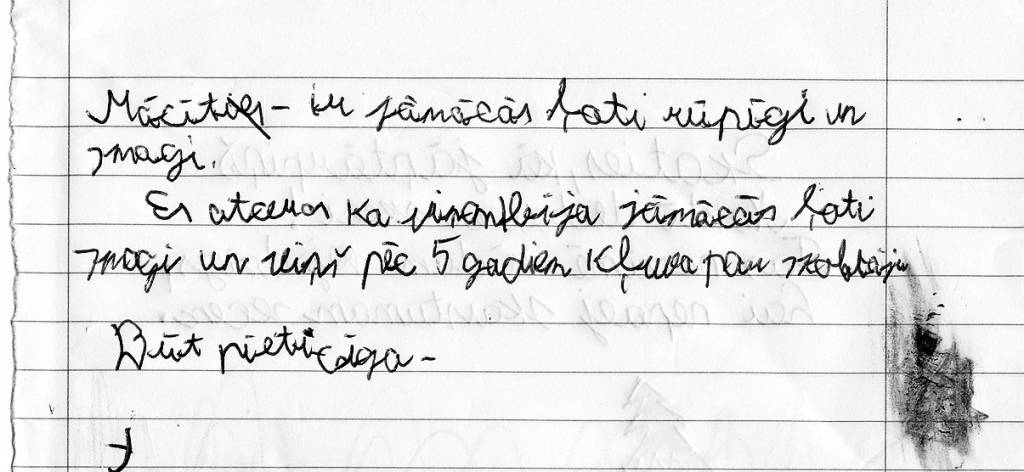 Mācīties - ir jāmācās ļoti rūpīgi un
smagi.
Es atceros ka vienam bija jāmācās ļoti
smagi un viņš pēc 5 gadiem kļuva par skolotāju
Būt pieticīga -